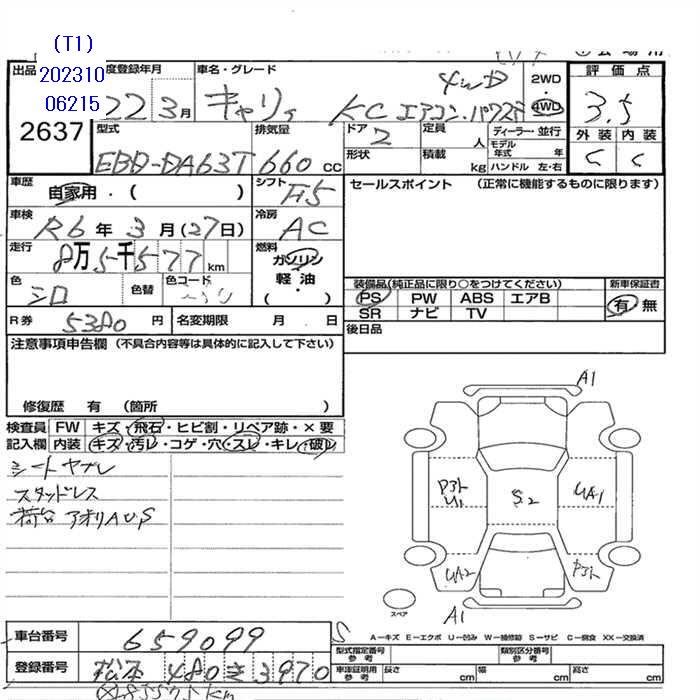 (T1)
202310
06215
出品
2637
度登録年月
22 3月
車名・グレード
4WD
キャリィ KC エアコン・パワステ
2WD
4WD
評価点
3.5
外装 内装
C C
型式
EBD-DA63T
排気量
660 cc
ドア 2
定員 人
形状
積載 kg
ディーラー・並行
モデル年式 年
ハンドル 左・右
車歴
自家用・( )
シフト F5
車検
R6年3月(27日)
冷房 AC
走行
8万5千577km
燃料
ガソリン
軽油
( )
色
シロ
色替
色コード
R券 5380円
名変期限 月 日
セールスポイント (正常に機能するものに限ります)
装備品(純正品に限り○をつけてください)
PS PW ABS エアB
SR ナビ TV
新車保証書
有 無
後日品
注意事項申告欄 (不具合内容等は具体的に記入して下さい)
修復歴 有 (箇所 )
検査員 FW キズ・飛石・ヒビ割・リペア跡・×要
記入欄 内装 キズ・汚レ・コゲ・穴・スレ・キレ・破レ
シートヤブレ
スタッドレス
荷台 アオリAUS
A1
Pアト
U1
S2
UA1
UA2
Pアト
スペア
A1
A−キズ E−エクボ U−凹み W−補修跡 S−サビ C−腐食 XX−交換済
車台番号 659099
登録番号 松本 480き3970
型式指定番号 参考
類別区分番号 参考
車庫証明用 参考
長さ cm
幅 cm
高さ cm